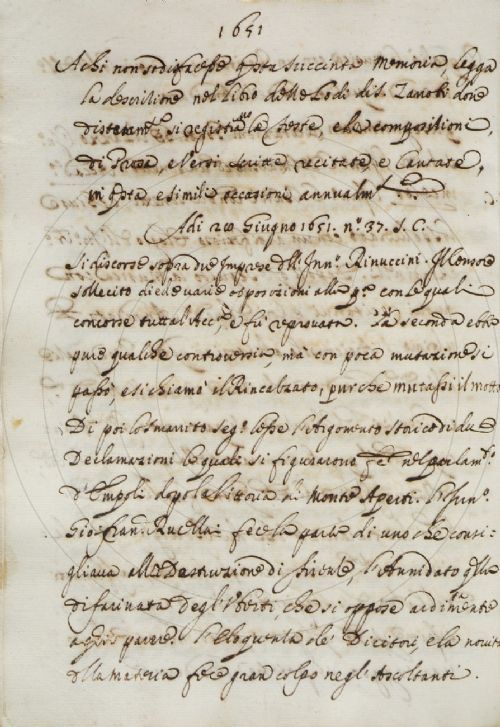 1651
A chi non sodisfacesse qsta succinta Memoria, legga
la descritione nel libro delle Lodi di S. Zanobi dove
distesamte si registra le feste, e le compositioni
di Prosa, e Versi scritte recitate, e Cantate,
in qsta, e simili occasioni annualmte
Adi 20 Giugno 1651. n.º 37. S. C.
Si discorse sopra due Imprese dll' Inn.º Rinuccini. Il Censore
sollecito diede varie opposizioni alla pª con le quali
concorse tutta l'Accª, e fù reprovata. La seconda ebbe
pure qualche controversia, mà con poca mutazione si
passò, e si chiamà il Rincalzato, purche mutassi il motto
Di poi lo smarrito segº lesse l'Argomento storico di due
Declamazioni le quali si figurarono nel parlamtº
d'Empoli dopo la Vittoria di Monte Aperti.
Gio: Franº Rucellai fece la parte di uno che consi-
gliava alla Destruzione di firenze, l'Annidato qlla
di farinata degl' Uberti, che si oppose arditamente
a qsto parere. l'eloquenza de' Dicitori, e la novità
dlla materia fece gran colpo negl' Ascoltanti.